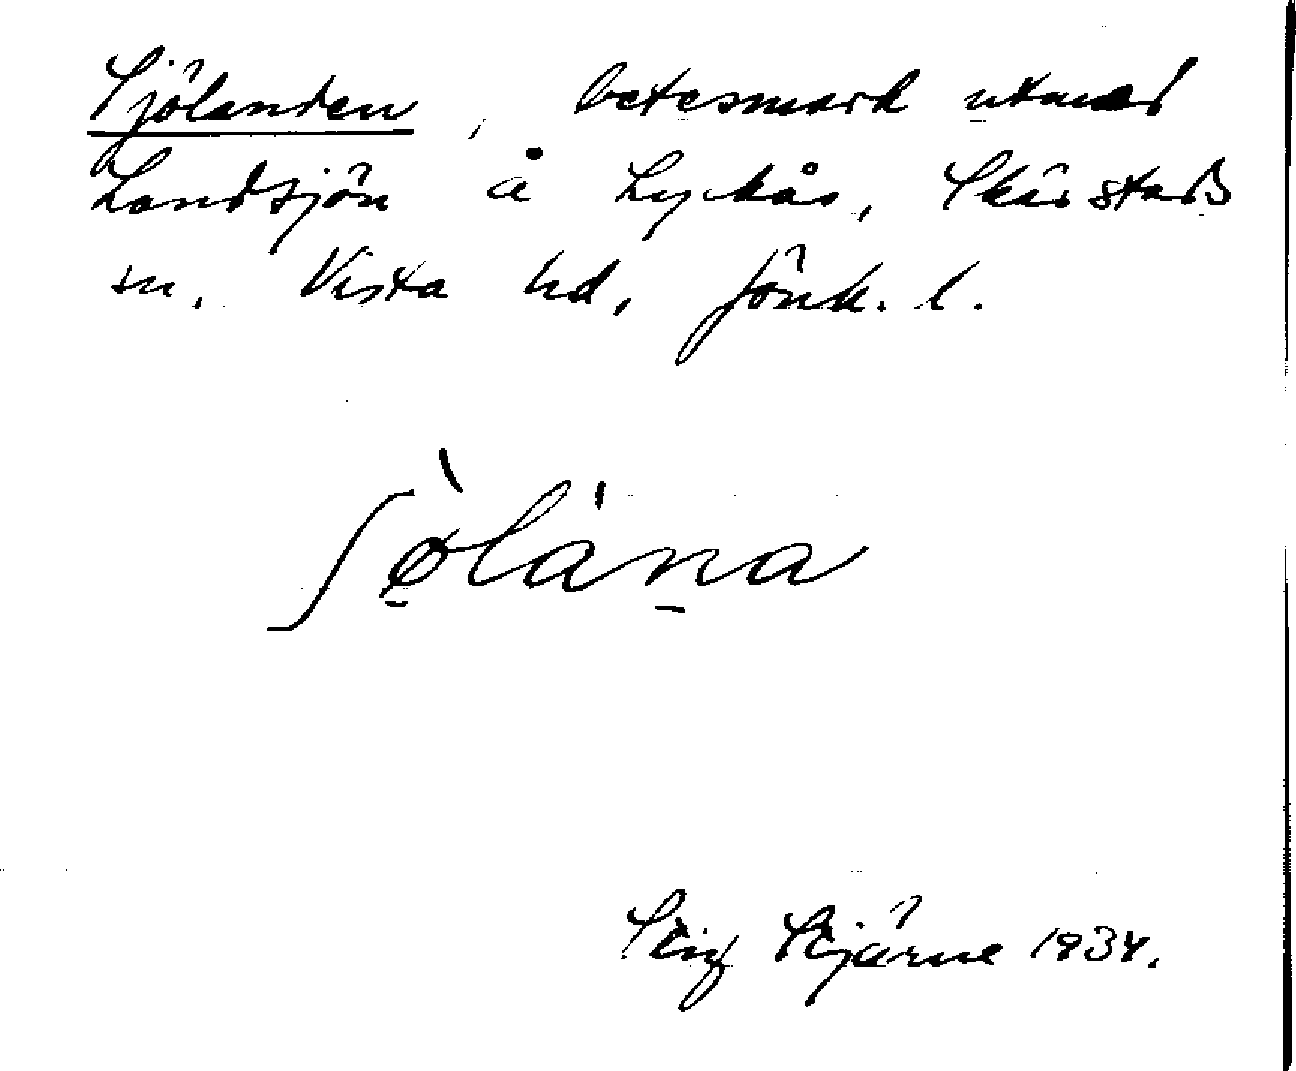 Sjölanden, betesmark utmed
Landsjön å Lyckås, Skärstads
sn. Vista hd, Jönk. l.
ʃø̠̀lȧn̠a
Stig Stjärne 1934.